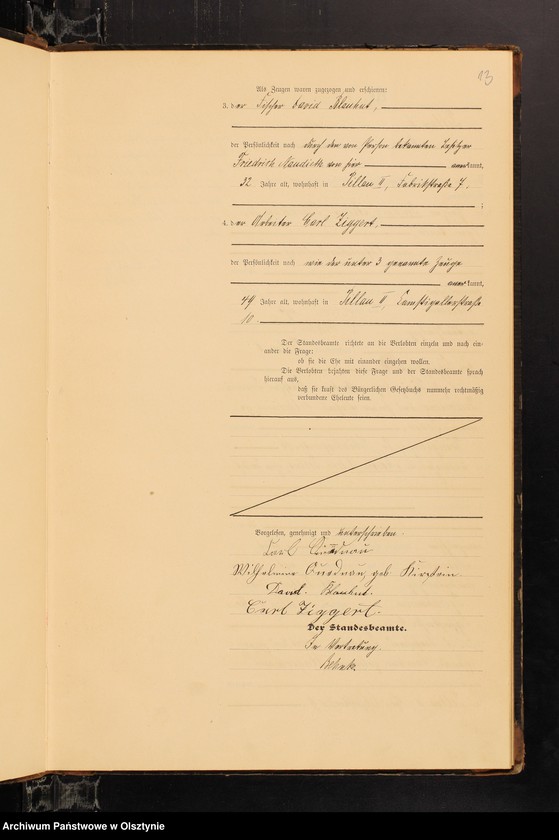 13
Als Zeugen waren zugezogen und erschienen:
3. der Fischer David Blankut,
der Persönlichkeit nach durch den von Person bekannten Besitzer
Friedrich Naudieth von hier anerkannt,
32 Jahre alt, wohnhaft in Pillau II, Fabrikstraße 7.
;
4. der Arbeiter Carl Ziggert,
der Persönlichkeit nach wie der unter 3 genannte Zeuge
anerkannt,
49 Jahre alt, wohnhaft in Pillau II, Camstigallerstraße
10.
Der Standesbeamte richtete an die Verlobten einzeln und nach ein-
ander die Frage:
ob sie die Ehe mit einander eingehen wollen.
Die Verlobten bejahten diese Frage und der Standesbeamte sprach
hierauf aus,
daß sie kraft des Bürgerlichen Gesetzbuchs nunmehr rechtmäßig
verbundene Eheleute seien.
Vorgelesen, genehmigt und unterschrieben.
Carl Quednau
Wilhelmine Quednau, geb. Kirstein.
David Blankut.
Carl Ziggert.
Der Standesbeamte.
In Vertretung.
Archiwum Państwowe w Olsztynie